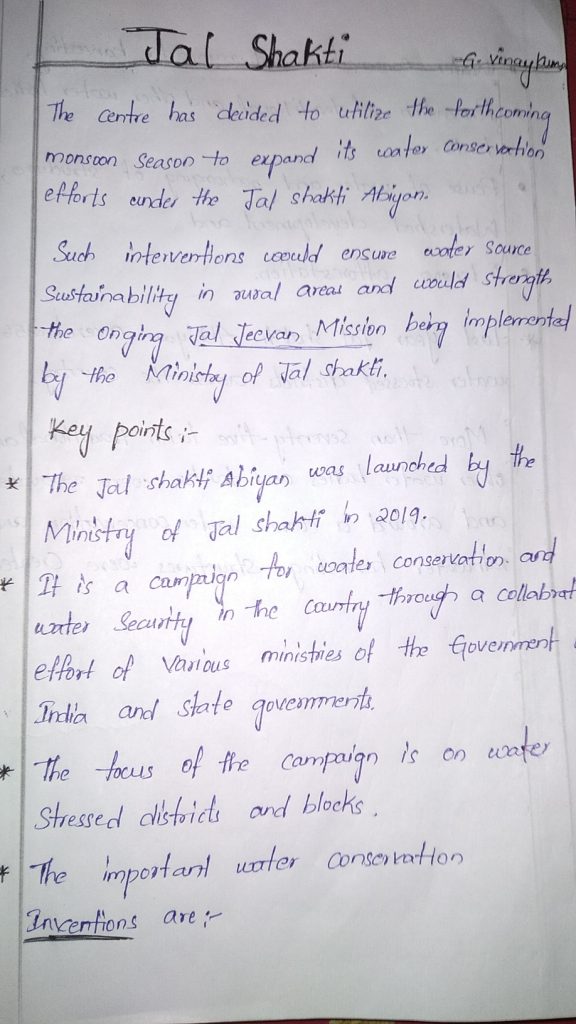 Jal Shakti
G. Vinay kum
The centre has decided to utilize the forthcoming
monsoon season to expand its water conservation
efforts under the Jal shakti Abiyan.
Such interventions would ensure water source
Sustainability in rural areas and would strength
the onging Jal Jeevan Mission being implemented
by the Ministry of Jal shakti.
Key points :-
* The Jal shakti Abiyan was launched by the
Ministry of Jal shakti in 2019.
* It is a campaign for water conservation and
water Security in the country through a collabrat
effort of Various ministries of the Government
India and state governments.
* The focus of the campaign is on water
Stressed districts and blocks.
* The important water conservation
Inventions are :-